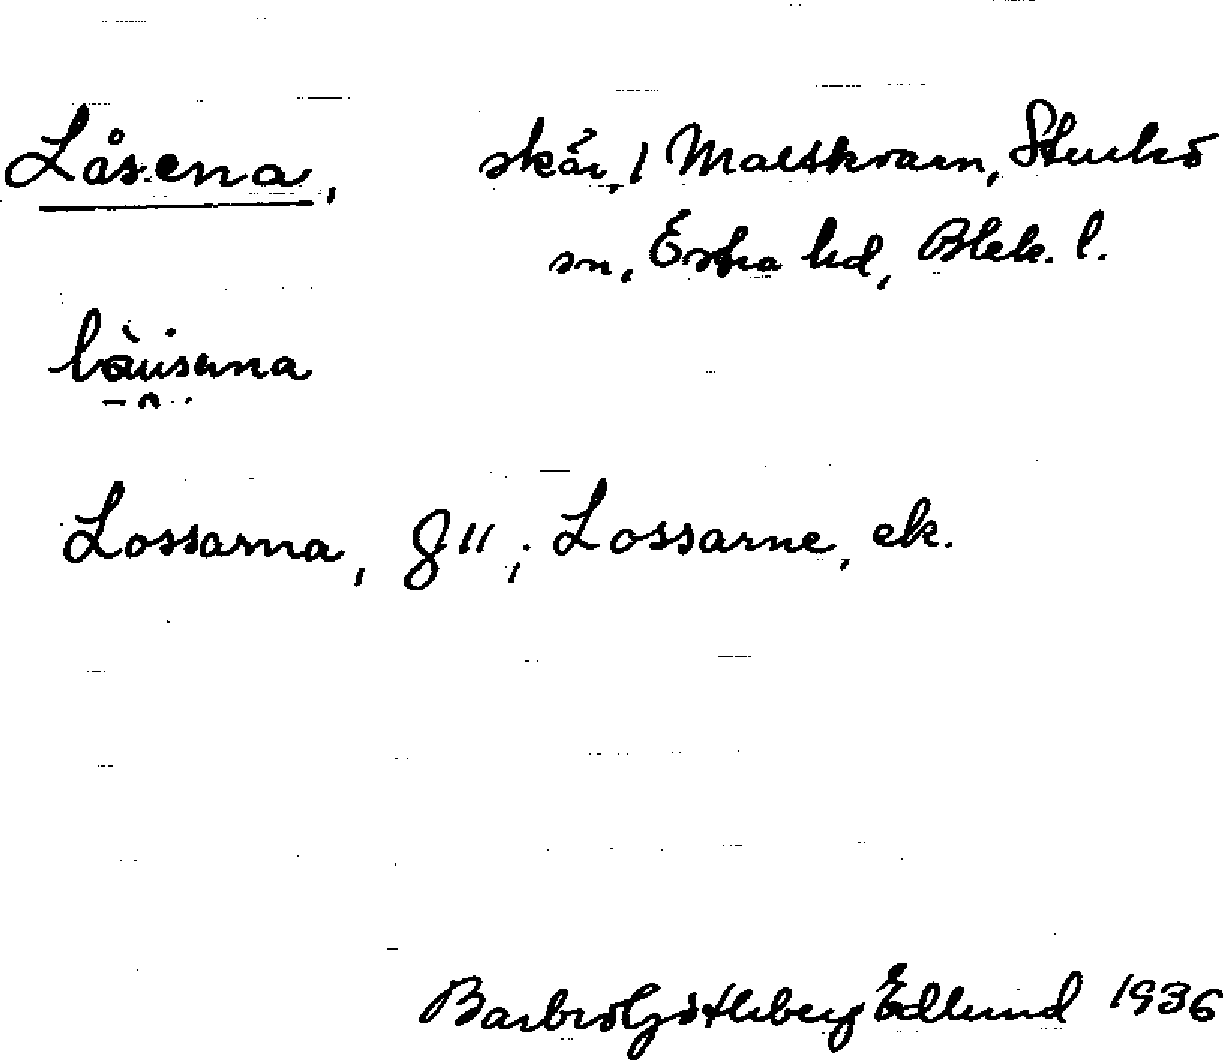 Låsena, skär, 1 Malskvarn, Sturkö
sn, Östra hd, Blek. l.
làusena
Lossarna, g 11; Lossarne, ek.
Barbro Götlberg Edlund 1936